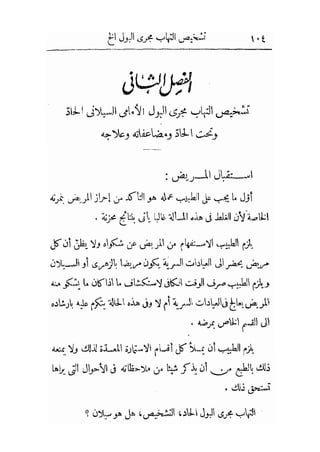 ١٠٤ تشخيص التهاب مجرى البول الخ
الفصل الثانى
تشخيص التهاب مجرى البول الأمامى السيلانى الحادة
وتحت الحادة ومضاعفاته وعلاجه
استقبال المريض :
أوّل ما يجب على الطبيب عمله هو التأكد من إحراز المريض بنمرته
الخاصة لأن الغلط فى هذه المسألة غالبا يأتى بنتائج محزنة .
يلزم الطبيب الاستفهام من المريض عن شكواه ولا يظنّ أن كل
مريض يحضر الى العيادات السرية يكون مريضا بالزهرى أو السيلان
ويلزم الطبيب صرف الوقت الكافى لاستكشاف ما اذا كان ما يشكو منه
المريض يعالج فى العيادات السرية أم لا وفى هذه الحالة يتكرم عليه بارشاده
الى القسم الخاص بمرضه .
يلزم الطبيب أن يملأ كل أقسام الاستمارة المعدّة لذلك ولا يمنعه
ذلك بالطبع من أن يذكر شيئا من ملاحظاته فى الأحوال التى يراها
تستحق ذلك .
التهاب مجرى البول الحاد، التشخيص، هل هو سيلان ؟